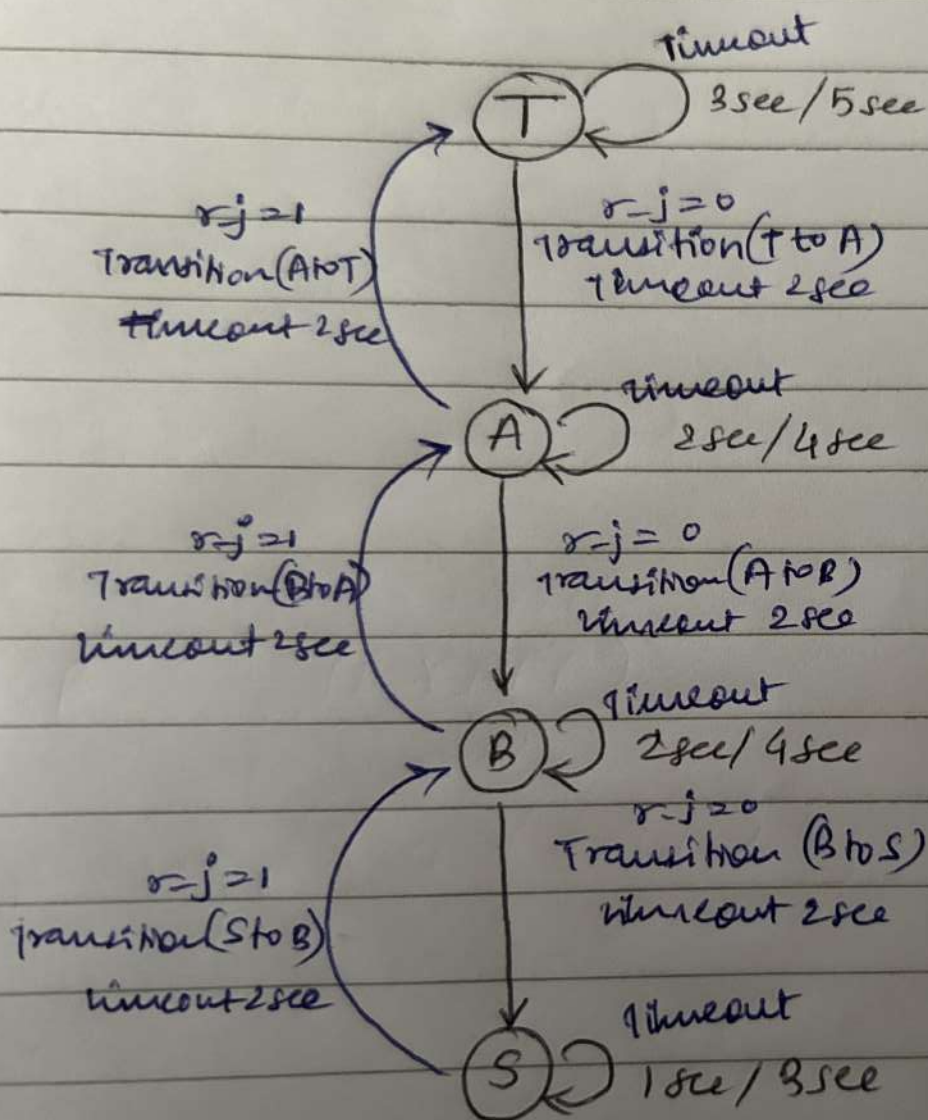 Timeout
T
3sec/5sec
r-j=1
Transition(AtoT)
timeout 2sec
r-j=0
Transition(T to A)
Timeout 2sec
timeout
A
2sec/4sec
r-j=1
Transition(BtoA)
timeout 2sec
r-j=0
Transition(AtoB)
timeout 2sec
Timeout
B
2sec/4sec
r-j=0
Transition (BtoS)
timeout 2sec
r-j=1
Transition(StoB)
timeout 2sec
Timeout
S
1sec/3sec